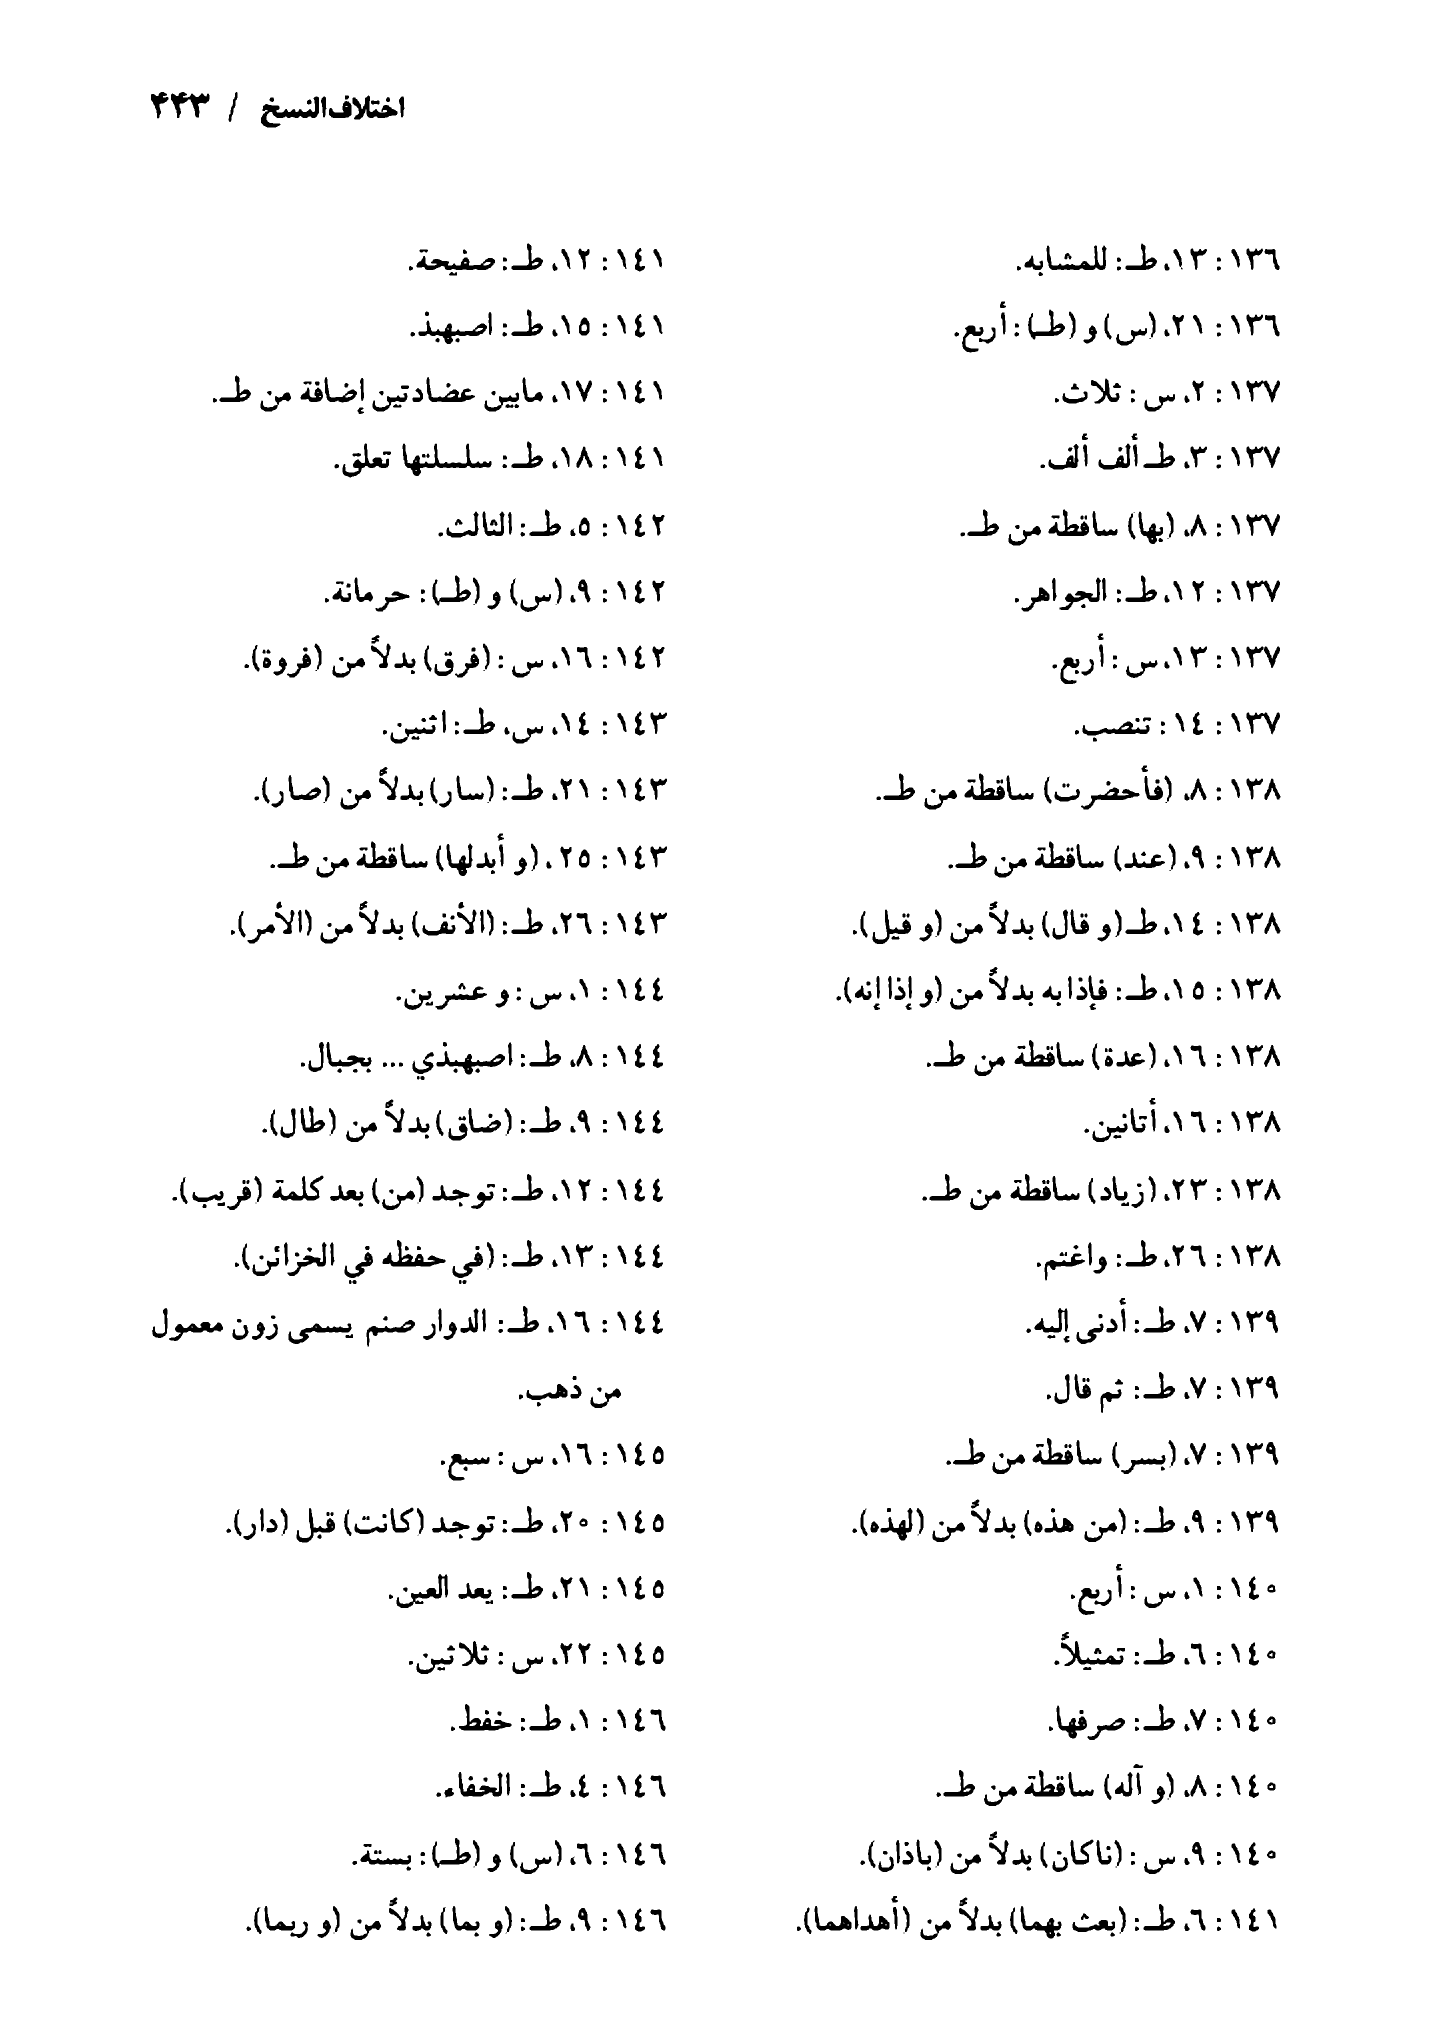 اختلاف النسخ / ۴۴۳
١٣٦ : ١٣، طـ : للمشابه.
١٣٦ : ٢١، (س) و (طـ) : أربع.
١٣٧ : ٢، س : ثلاث.
١٣٧ : ٣، طـ ألف ألف.
١٣٧ : ٨، (بها) ساقطة من طـ.
١٣٧ : ١٢، طـ : الجواهر.
١٣٧ : ١٣، س : أربع.
١٣٧ : ١٤ : تنصب.
١٣٨ : ٨، (فأحضرت) ساقطة من طـ.
١٣٨ : ٩، (عند) ساقطة من طـ.
١٣٨ : ١٤، طـ (و قال) بدلاً من (و قيل).
١٣٨ : ١٥، طـ : فإذا به بدلاً من (و إذا إنه).
١٣٨ : ١٦، (عدة) ساقطة من طـ.
١٣٨ : ١٦، أتانين.
١٣٨ : ٢٣، (زياد) ساقطة من طـ.
١٣٨ : ٢٦، طـ : واغتم.
١٣٩ : ٧، طـ : أدنى إليه.
١٣٩ : ٧، طـ : ثم قال.
١٣٩ : ٧، (بسر) ساقطة من طـ.
١٣٩ : ٩، طـ : (من هذه) بدلاً من (لهذه).
١٤٠ : ١، س : أربع.
١٤٠ : ٦، طـ : تمثيلاً.
١٤٠ : ٧، طـ : صرفها.
١٤٠ : ٨، (و آله) ساقطة من طـ.
١٤٠ : ٩، س : (ناكان) بدلاً من (باذان).
١٤١ : ٦، طـ : (بعث بهما) بدلاً من (أهداهما).
١٤١ : ١٢، طـ : صفيحة.
١٤١ : ١٥، طـ : اصبهبذ.
١٤١ : ١٧، مابين عضادتين إضافة من طـ.
١٤١ : ١٨، طـ : سلسلتها تعلق.
١٤٢ : ٥، طـ : الثالث.
١٤٢ : ٩، (س) و (طـ) : حرمانة.
١٤٢ : ١٦، س : (فرق) بدلاً من (فروة).
١٤٣ : ١٤، س، طـ : اثنين.
١٤٣ : ٢١، طـ : (سار) بدلاً من (صار).
١٤٣ : ٢٥، (و أبدلها) ساقطة من طـ.
١٤٣ : ٢٦، طـ : (الأنف) بدلاً من (الأمر).
١٤٤ : ١، س : و عشرين.
١٤٤ : ٨، طـ : اصبهبذي ... بجبال.
١٤٤ : ٩، طـ : (ضاق) بدلاً من (طال).
١٤٤ : ١٢، طـ : توجد (من) بعد كلمة (قريب).
١٤٤ : ١٣، طـ : (في حفظه في الخزائن).
١٤٤ : ١٦، طـ : الدوار صنم يسمى زون معمول
من ذهب.
١٤٥ : ١٦، س : سبع.
١٤٥ : ٢٠، طـ : توجد (كانت) قبل (دار).
١٤٥ : ٢١، طـ : يعد العين.
١٤٥ : ٢٢، س : ثلاثين.
١٤٦ : ١، طـ : خفط.
١٤٦ : ٤، طـ : الخفاء.
١٤٦ : ٦، (س) و (طـ) : بستة.
١٤٦ : ٩، طـ : (و بما) بدلاً من (و ربما).